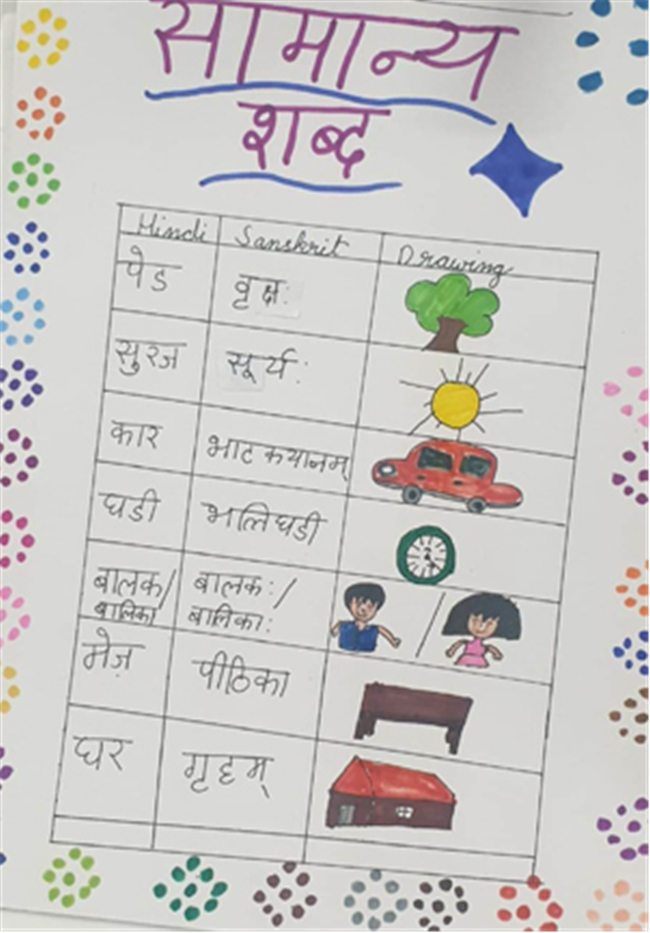 सामान्य
शब्द
Hindi Sanskrit Drawing
पेड वृक्षः
सुरज सूर्य:
कार भाटकयानम्
घडी भलिघडी
बालक/ बालकः/
बालिका बालिका:
मेज़ पीठिका
घर गृहम्